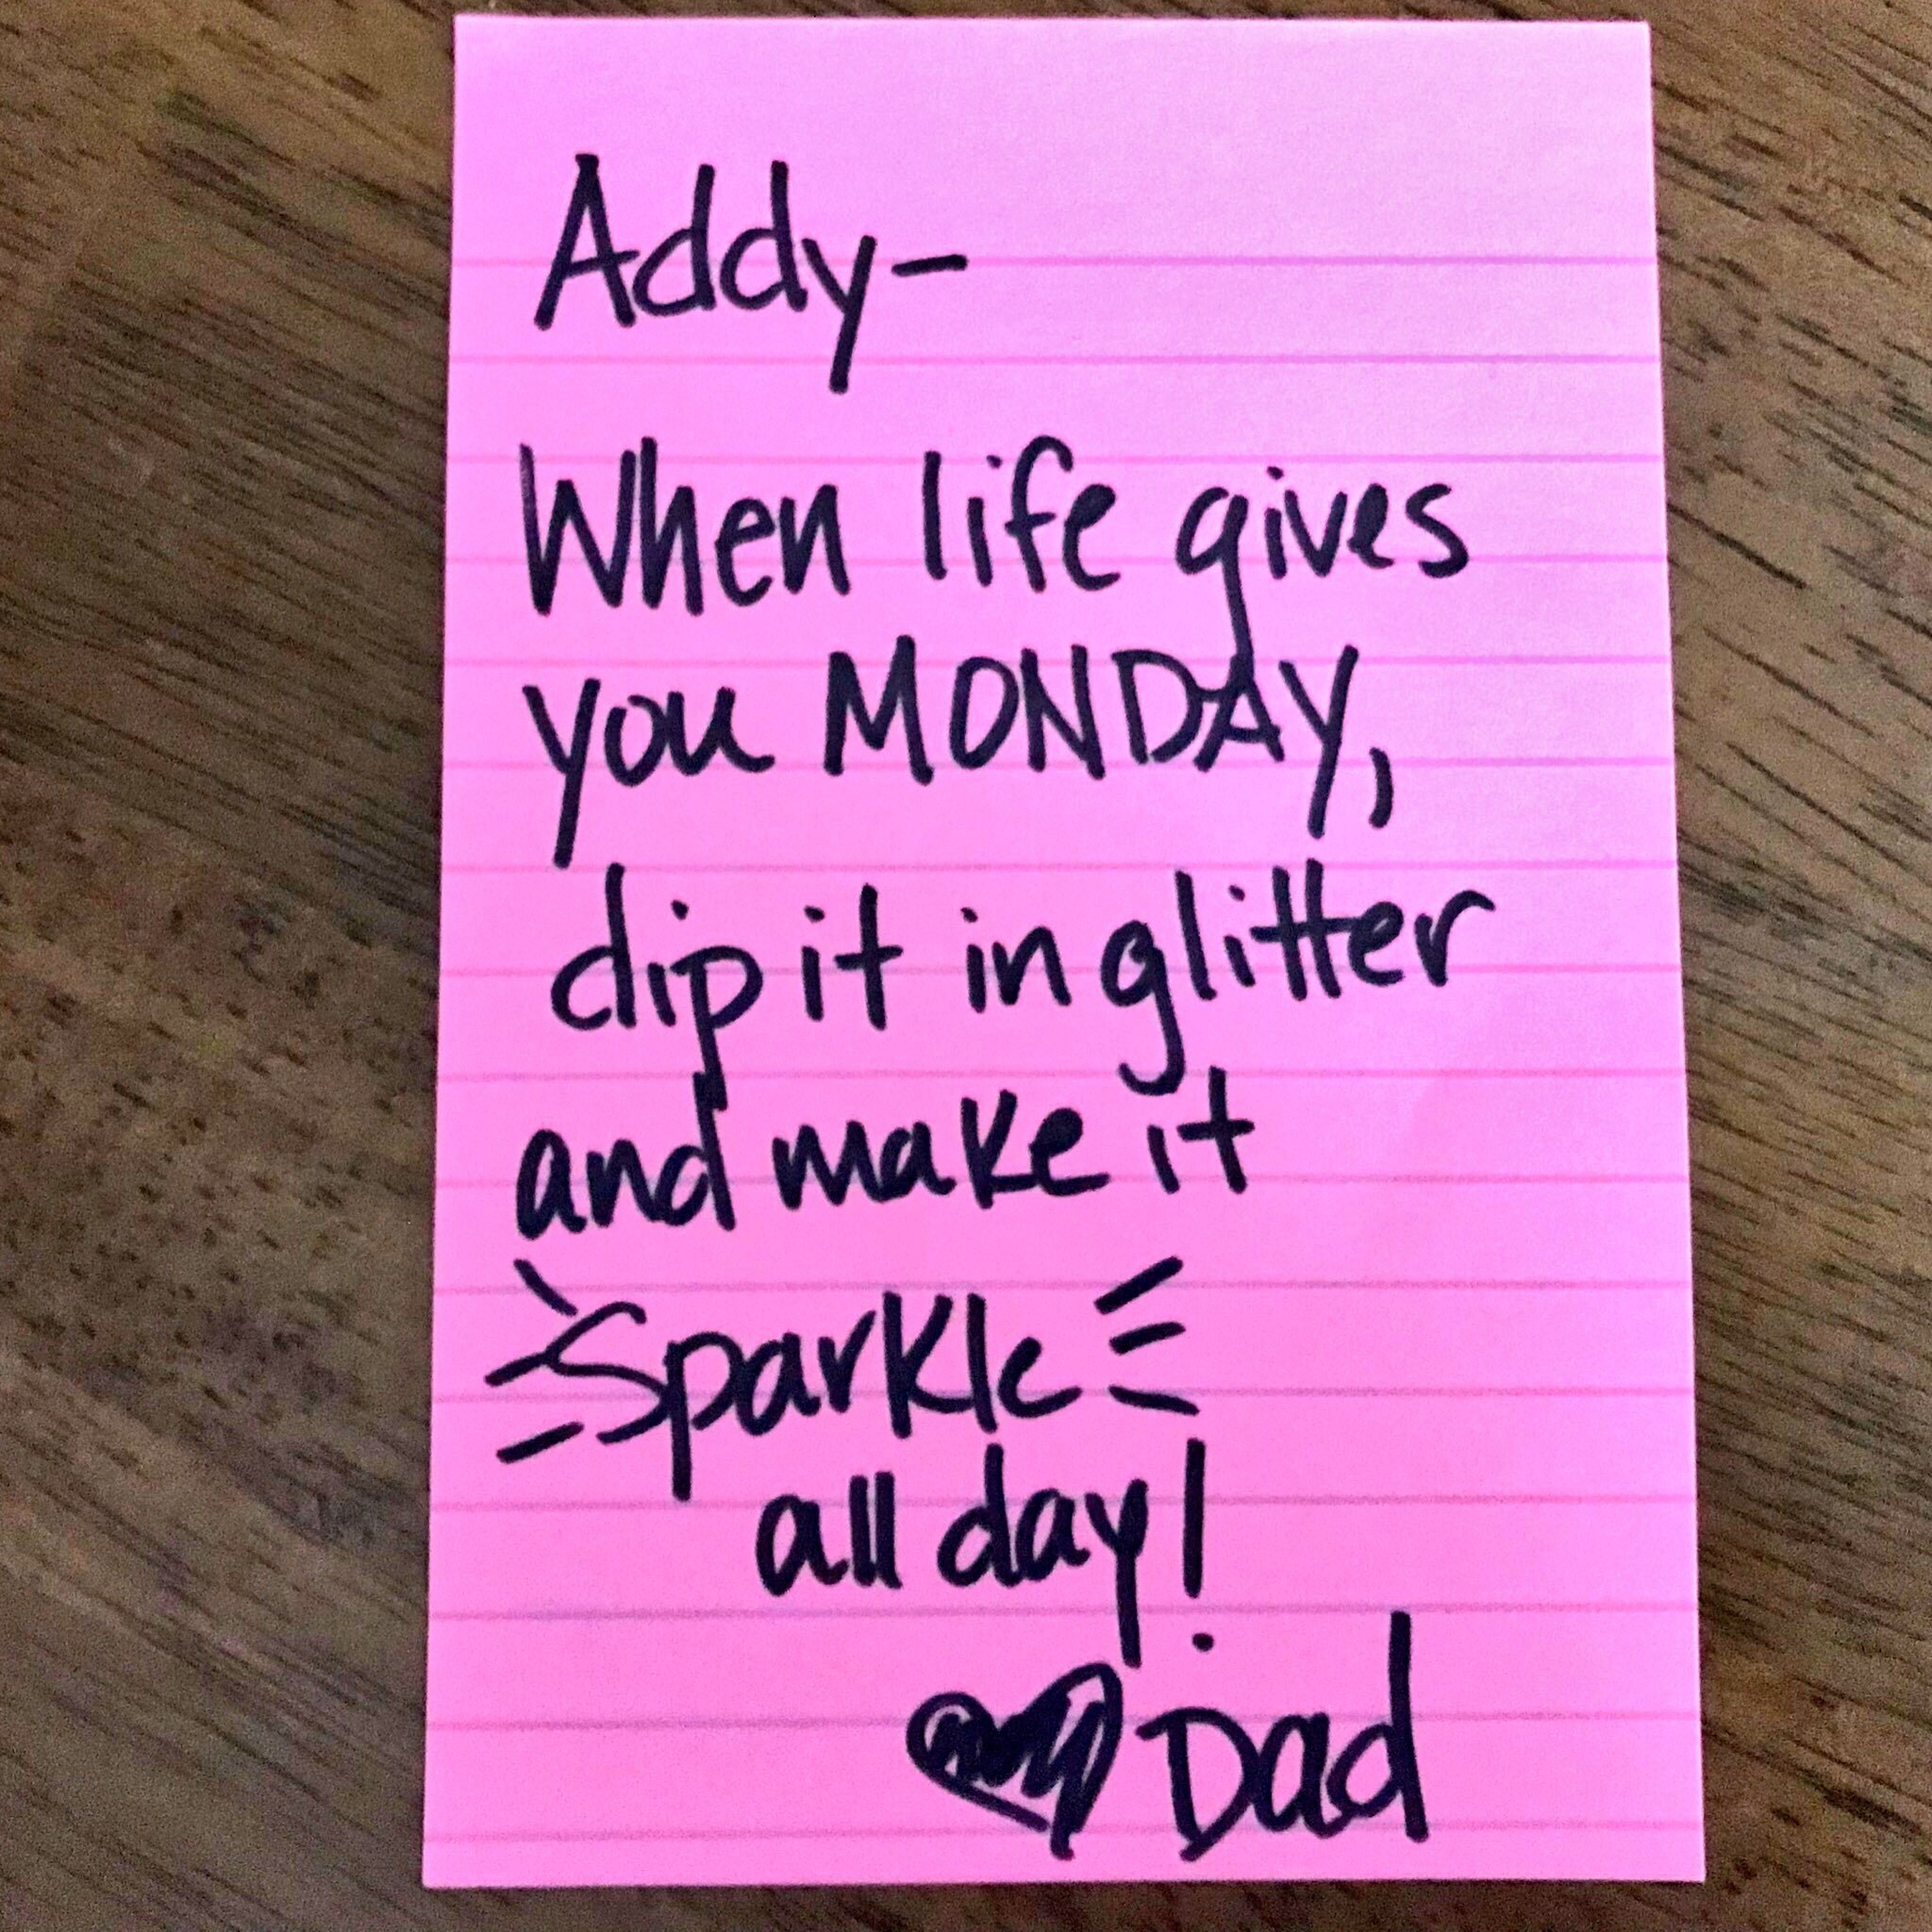 Addy-
When life gives
you MONDAY,
dip it in glitter
and make it
Sparkle
all day!
Dad